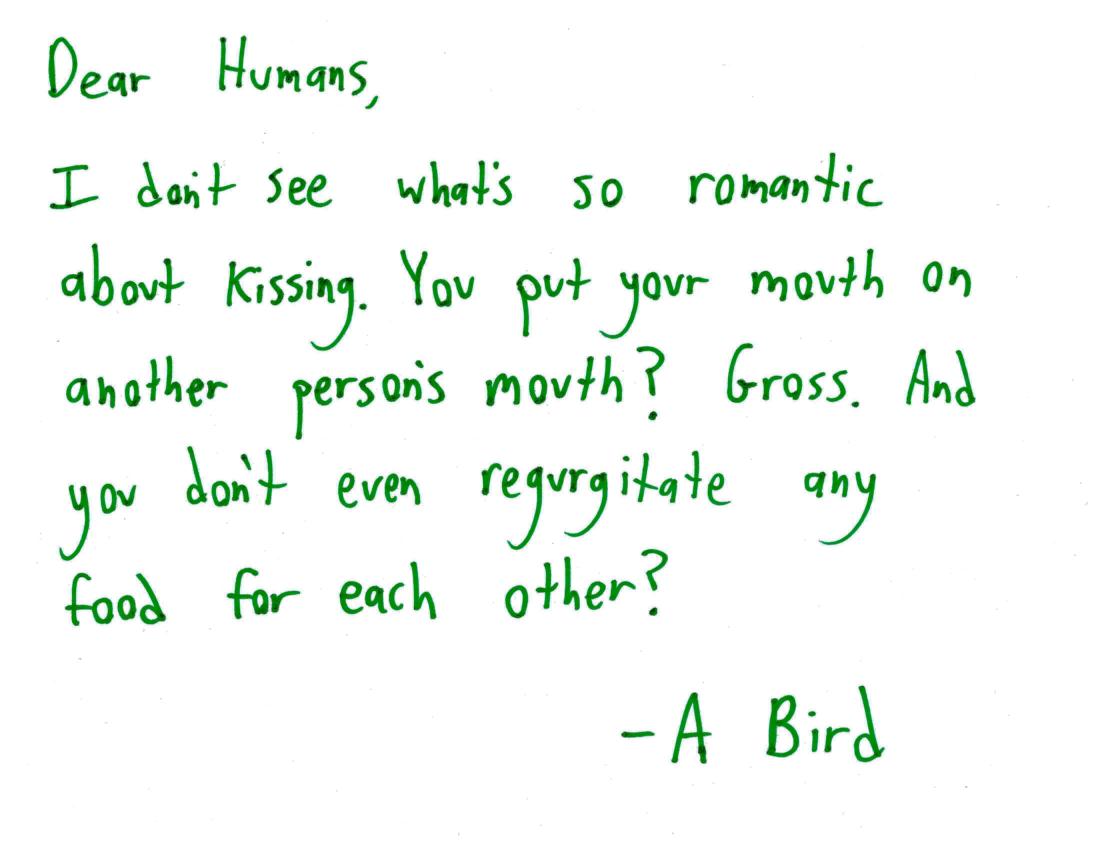 Dear Humans,
I don't see what's so romantic
about kissing. You put your mouth on
another person's mouth? Gross. And
you don't even regurgitate any
food for each other?
-A Bird